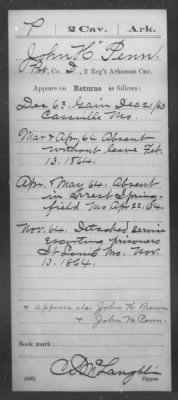 P 2 Cav. Ark.
John H. Penn.
Pvt, Co. D, 2 Reg't Arkansas Cav.
Appears on Returns as follows:
Dec 63. Gain Dec 21/63
Cassville Mo.
Mar & Apr. 64 Absent
without leave Feb.
13. 1864.
Apr. May 64. Absent
in Arrest Spring-
field Mo Apr 22. 64.
Nov. 64. Detached service
escorting prisoners
St Louis Mo. Nov.
13. 1864.
& appears also John H
& John M
Book mark:
C. D. McLaughlin
Copyist.